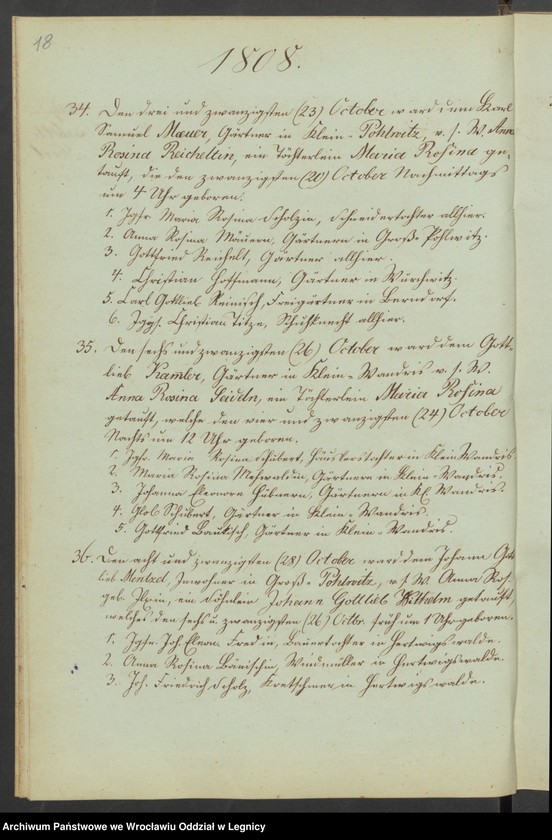 18
1808.
34. Den drei und zwanzigsten (23) October ward dem Karl
Samuel Mauer, Gärtner in Klein-Pohlwitz, v. s. W. Anna
Rosina Reicheltin, ein Töchterlein Maria Rosina ge-
tauft, die den zwanzigsten (20) October Nachmittags
um 4 Uhr geboren.
1. Jgfr. Maria Rosina Scholzin, Schneidertochter allhier.
2. Anna Rosina Mauern, Gärtnern in Groß-Pohlwitz.
3. Gottfried Reichelt, Gärtner allhier.
4. Christian Hoffmann, Gärtner in
5. Carl Gottlieb Reinisch, Freigärtner in Berndorf.
6. Jggs. Christian Titze, Schuhknecht allhier.
35. Den sechs und zwanzigsten (26) October ward dem Gott-
lieb Kamler, Gärtner in Klein-Wandris v. s. W.
Anna Rosina Seideln, ein Töchterlein Maria Rosina
getauft, welche den vier und zwanzigsten (24) October
Nachts um 12 Uhr geboren.
1. Jgfr. Maria Rosina Schubert, Häuslerstochter in Klein Wandris.
2. Maria Rosina Gärtnern in Klein-Wandris.
3. Johanna Eleonore Hübnern, Gärtnern in Kl. Wandris.
4. Glob Schubert, Gärtner in Klein-Wandris.
5. Gottfried Gärtner in Klein-Wandris.
36. Den acht und zwanzigsten (28) October ward dem Johann Gott-
lieb Mentzel, Inwohner in Groß-Pohlwitz, v. s. W. Anna Ros.
geb. ein Söhnlein Johann Gottlieb Wilhelm getauft,
welches den sechs u. zwanzigsten (26) Octbr. früh um 1 Uhr geboren.
1. Jgfr. Joh. Eleon. Bauertochter in Hertwigswalde.
2. Anna Rosina Windmüller in Hertwigswalde.
3. Joh. Friedrich Scholz, Kretschmer in Hertwigswalde.
Archiwum Państwowe we Wrocławiu Oddział w Legnicy